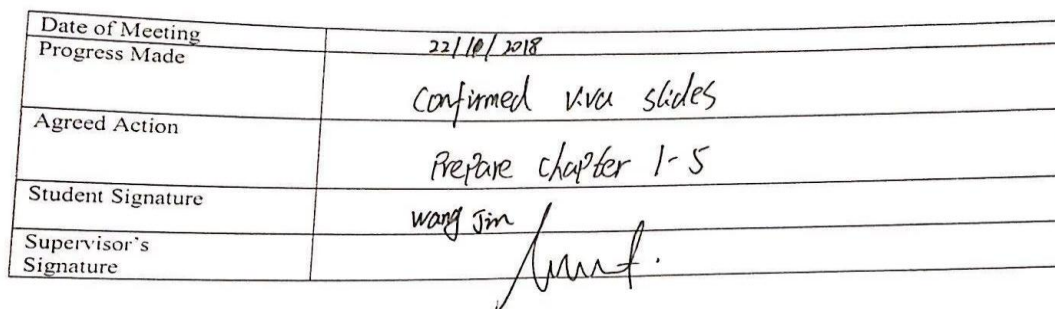 Date of Meeting
22/10/2018
Progress Made
Confirmed viva slides
Agreed Action
Prepare chapter 1-5
Student Signature
Wang Jin
Supervisor's
Signature